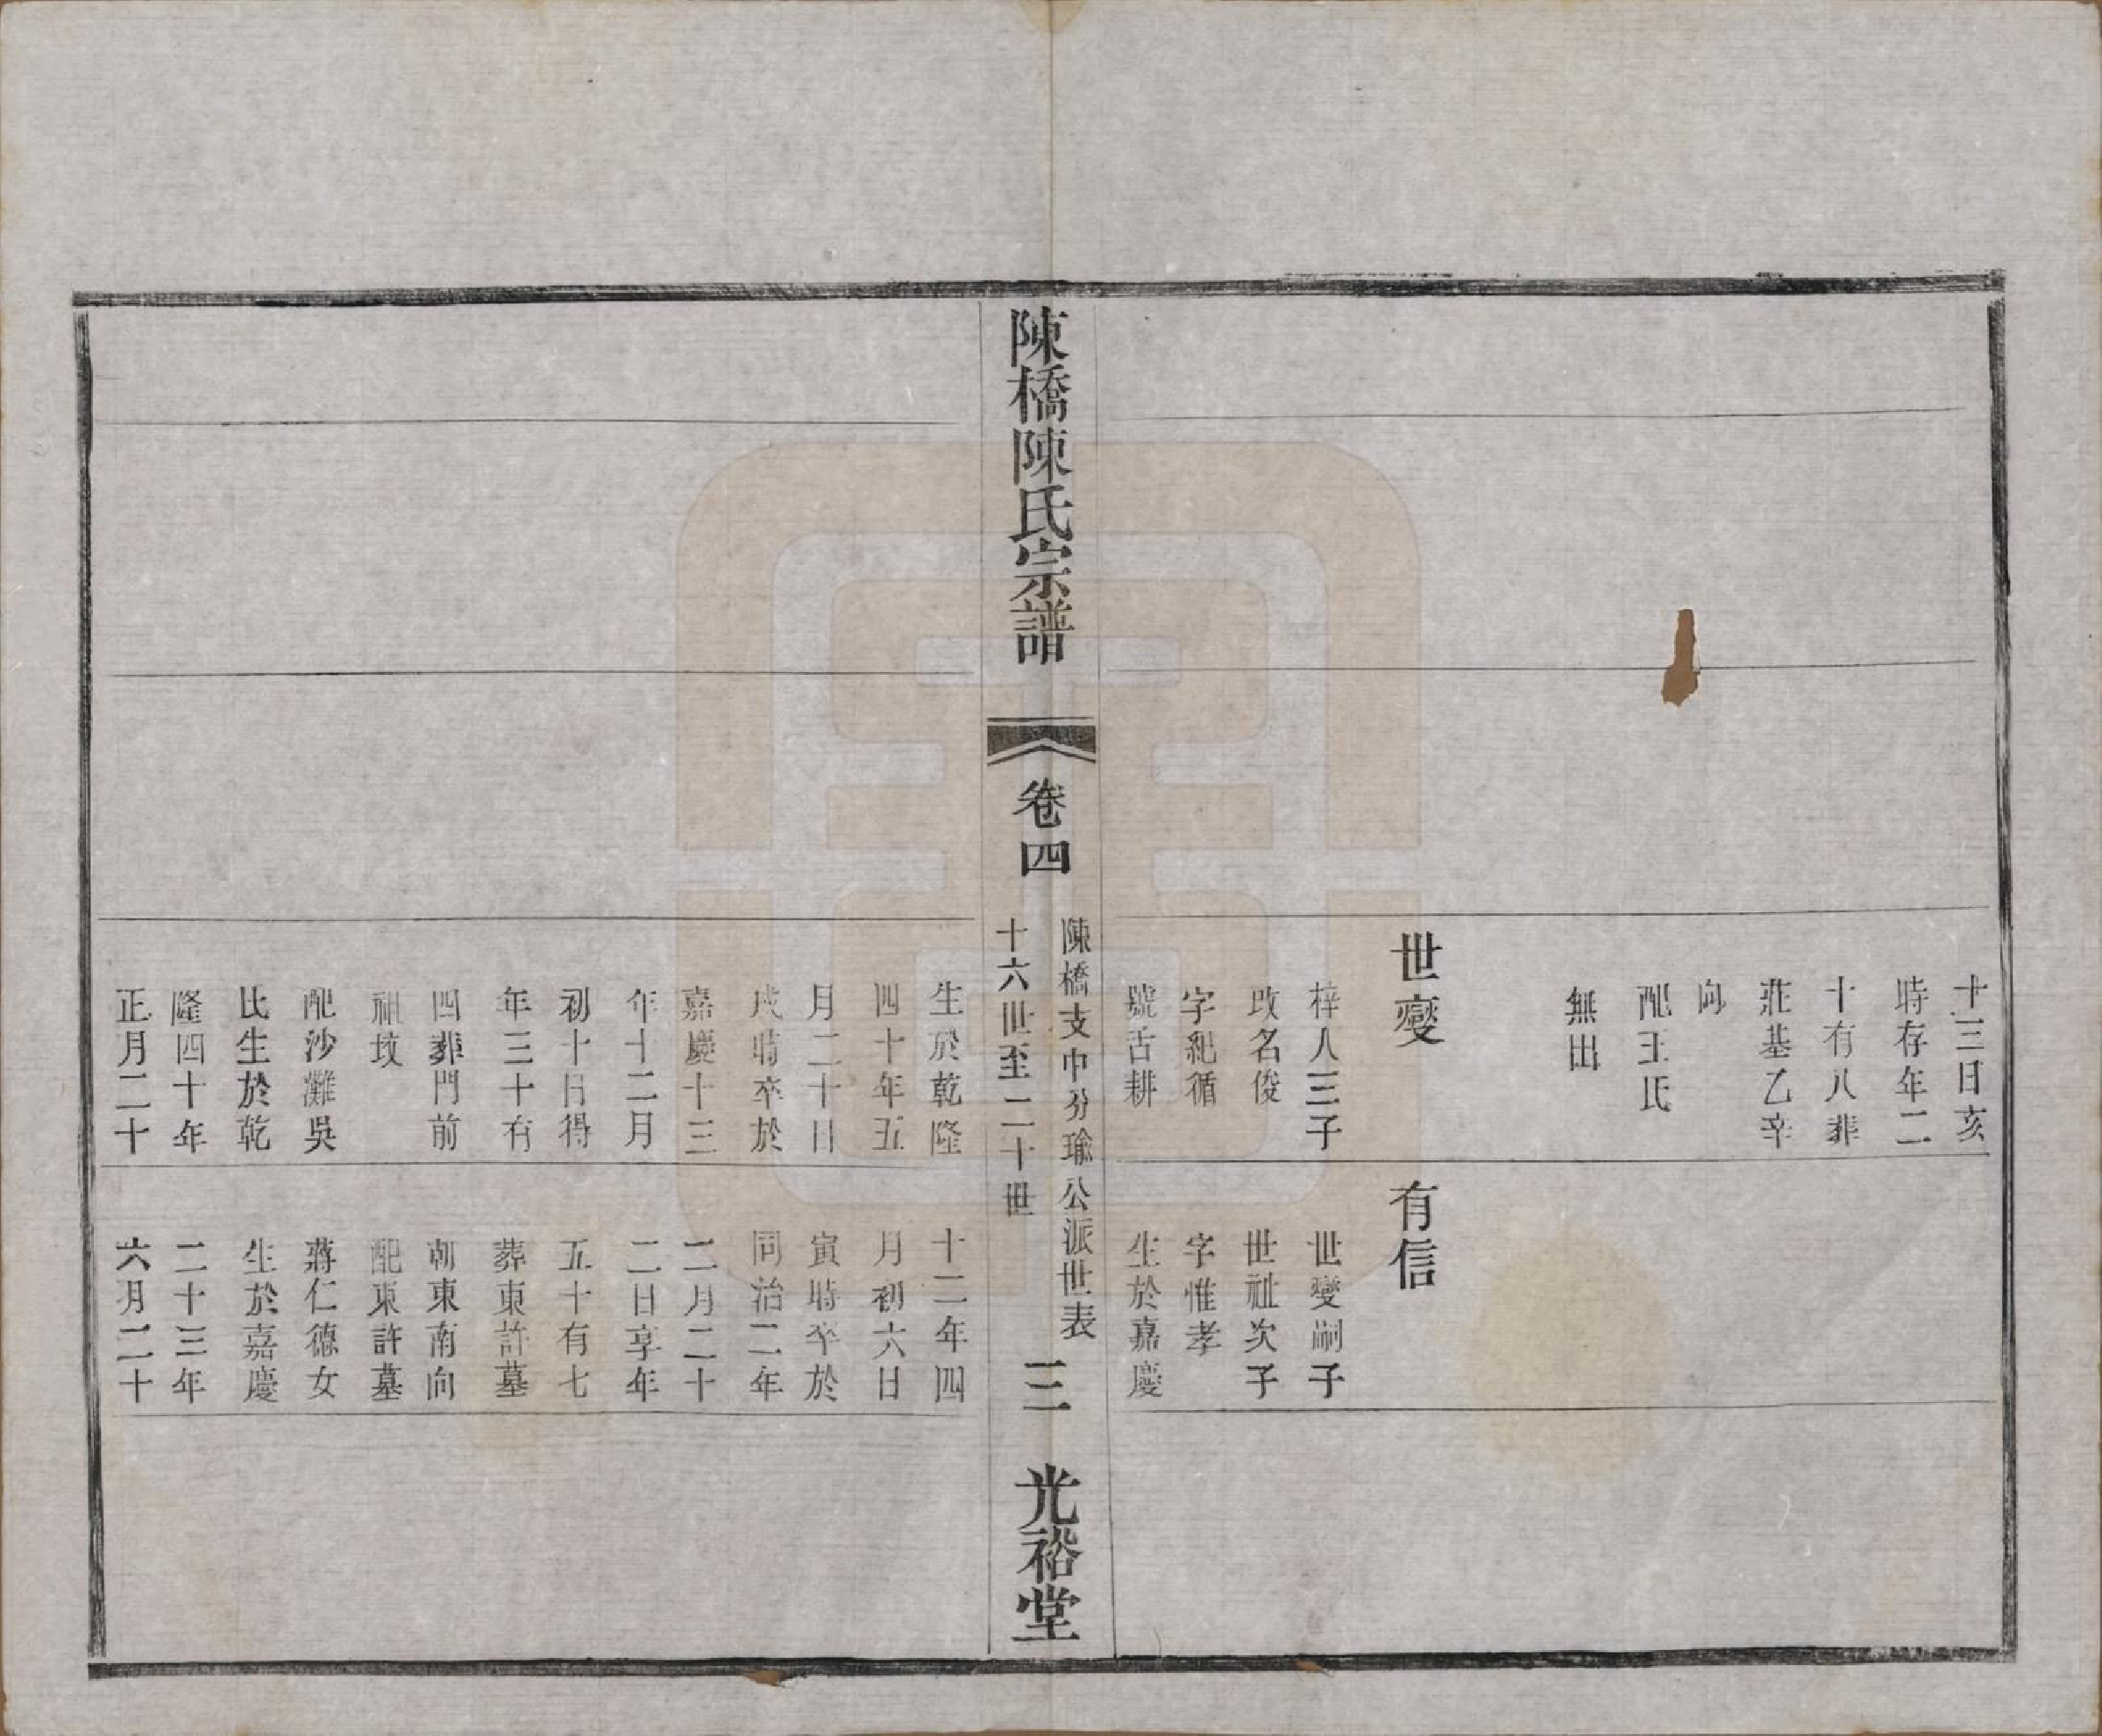 十三日亥
時存年二
十有八葬
莊基乙辛
向
配王氏
無出
世變
梓人三子
改名俊
字紀循
號舌耕
有信
世變嗣子
世祉次子
字惟孝
生於嘉慶
陳橋陳氏宗譜
卷四
陳橋支中分瑜公派世表
十六世至二十世
三
光裕堂
生於乾隆
四十年五
月二十日
戌時卒於
嘉慶十三
年十二月
初十日得
年三十有
四葬門前
祖坟
配沙灘吳
氏生於乾
隆四十年
正月二十
十二年四
月初六日
寅時卒於
同治二年
二月二十
二日享年
五十有七
葬東許墓
朝東南向
配東許墓
蔣仁德女
生於嘉慶
二十三年
六月二十